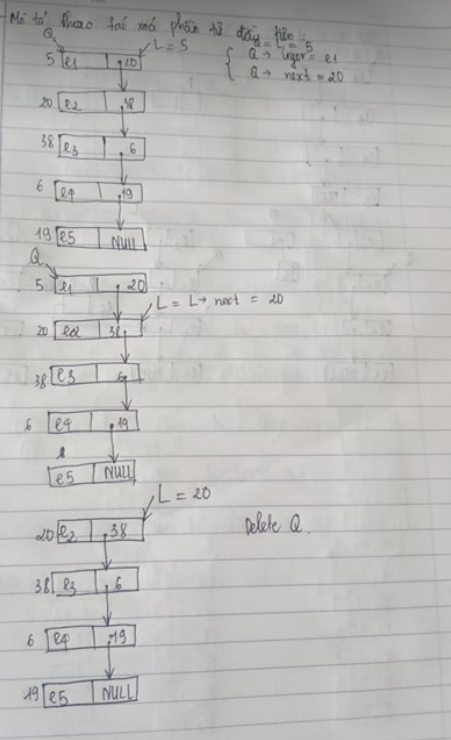 - Mô tả thao tác xoá phần tử đầu tiên
Q
L = 5
Q = L = 5
5 e1 20
Q → infor = e1
Q → next = 20
20 e2 38
38 e3 6
6 e4 19
19 e5 NULL
Q
5 e1 20
L = L → next = 20
20 e2 38
38 e3 6
6 e4 19
e5 NULL
L = 20
20 e2 38
Delete Q.
38 e3 6
6 e4 19
19 e5 NULL